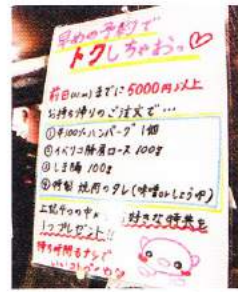 早めの予約で
トクしちゃおっ♡
前日(〇〇)までに5000円以上
お持ち帰りのご注文で…
①牛100%ハンバーグ 1個
②イベリコ豚肩ロース 100g
③しま腸 100g
④特製 焼肉のタレ(味噌orしょうゆ)
上記4つの中から好きな特典を
1つプレゼント!!
待ち時間もナシで